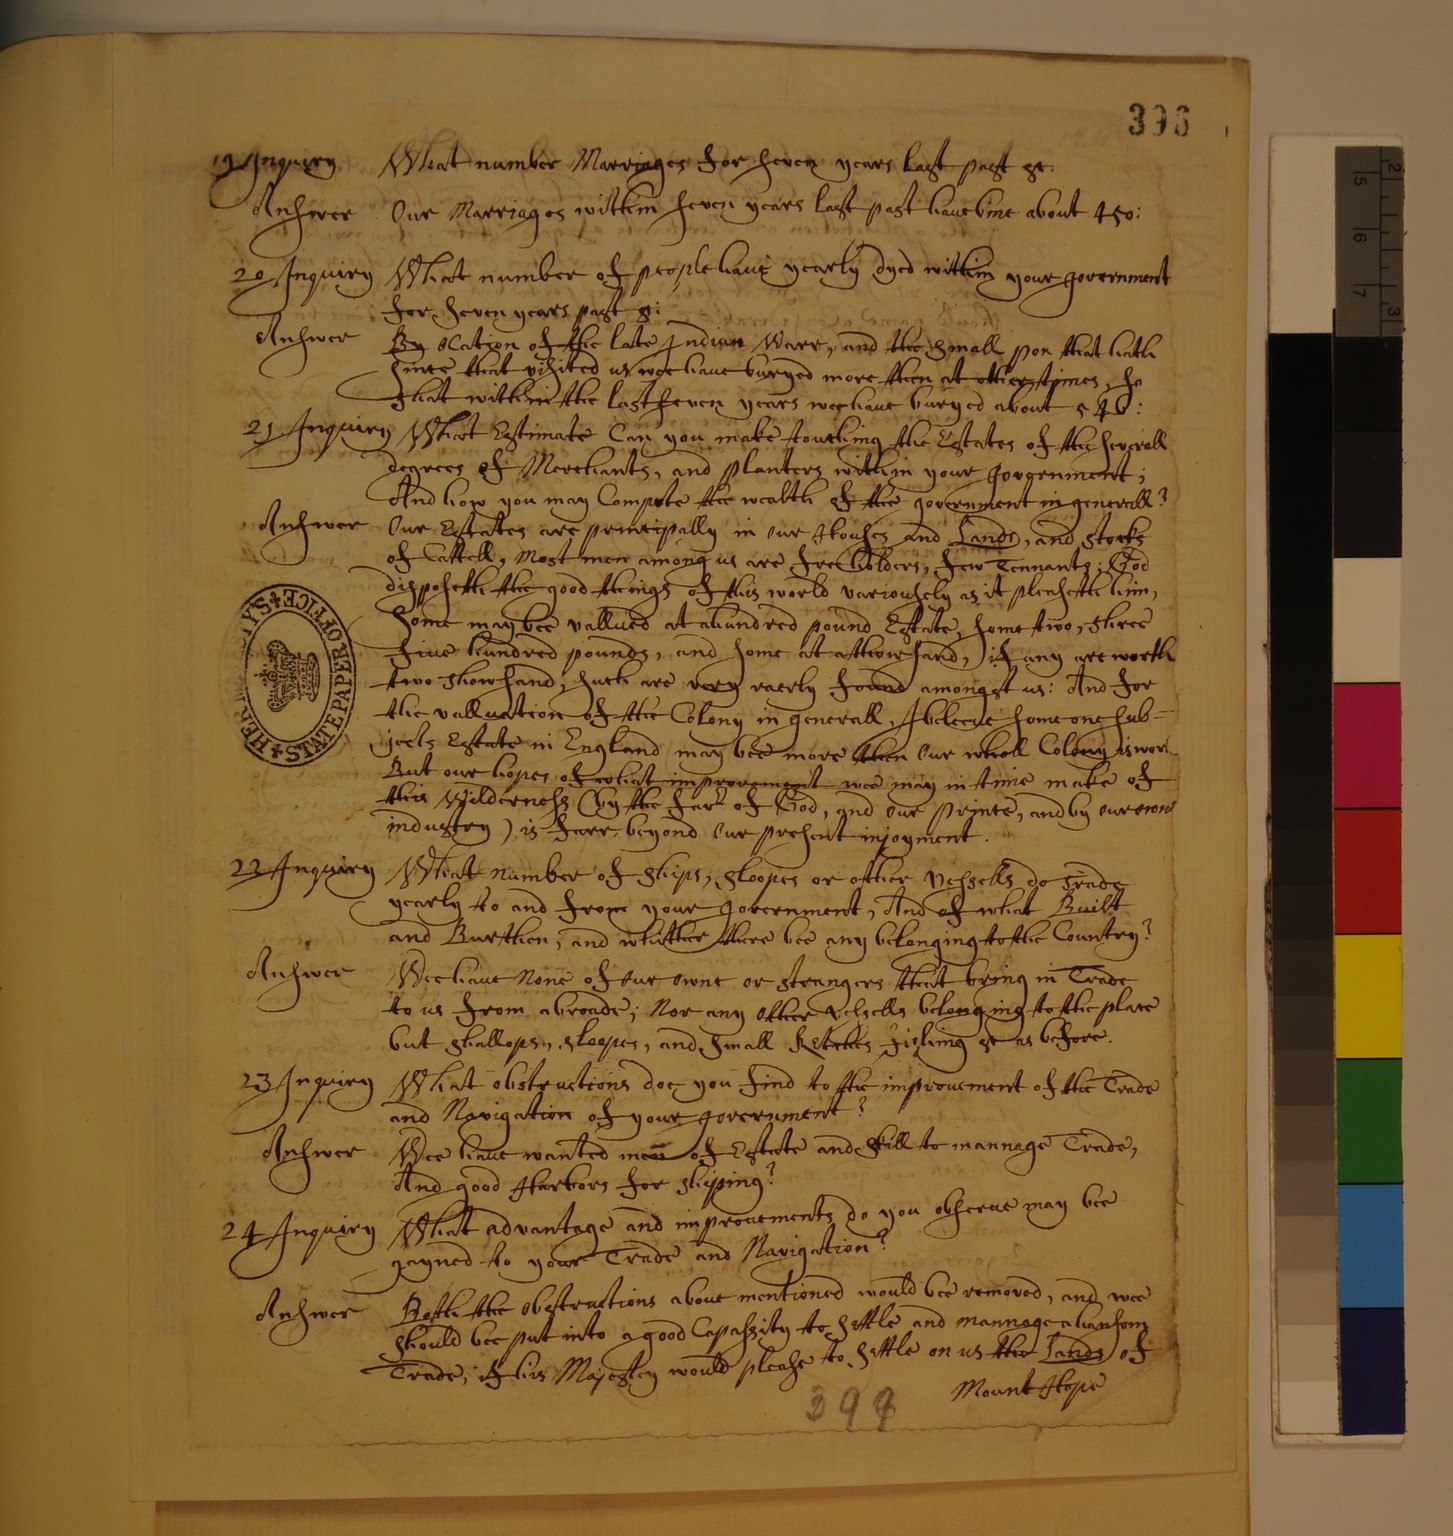 396
19 Inquiry What number Marriages for seven years last past &c.
Answer Our Marriages within seven years last past have bine about 450:
20 Inquiry What number of people have yearly dyed within your government
for seven years past &:
Answer By ocation of the late Indian Warr, and the small pox that hath
since that visited us wee have buryed more then at other times, so
that within the last seven years wee have buryed about 540:
21 Inquiry What Estimate Can you make touching the Estates of the severall
degrees of Merchants, and planters within your government;
And how you may Compute the wealth of the government in generall?
Answer Our Estates are principally in our Houses and Lands, and stocks
of Cattell, Most men among us are freeholders, few Tennants; God
disposeth the good things of this world variously as it pleaseth him,
Some may bee vallued at a hundred pound Estate, some two, three
five hundred pounds, and some at a thowsand, if any are worth
two thowsand, such are very raerly found amongst us: And for
the valluation of the Colony in generall, I beleeve some one sub=
jects Estate in England may bee more then our wholl Colony is wor
But our hopes of what improvement wee may in time make of
this Wilderness (by the favr of God, and our Prince, and by our owne
industry) is farr beyond our present injoyment.
22 Inquiry What number of ships, sloopes or other Vessells do trade
yearly to and from your government, And of what Built
and Burthen, and whither there bee any belonging to the Country?
Answer Wee have None of our owne or strangers that bring in Trade
to us from abroade; Nor any other vessells belonging to the place
but shallops, sloopes, and small Ketches fishing &c as before.
23 Inquiry What obstructions doe you find to the improvement of the Trade
and Navigation of your government?
Answer Wee have wanted men of Estate and skill to mannage Trade,
And good Harbors for shiping?
24 Inquiry What advantage and improvements do you observe may bee
gayned to your Trade and Navigation?
Answer Both the obstructions above mentioned would bee removed, and wee
should bee put into a good Capassity to settle and mannage a hansom
Trade, if his Majesty would please to settle on us the Lands of
Mount Hope
HER MAJESTY'S STATE PAPER OFFICE